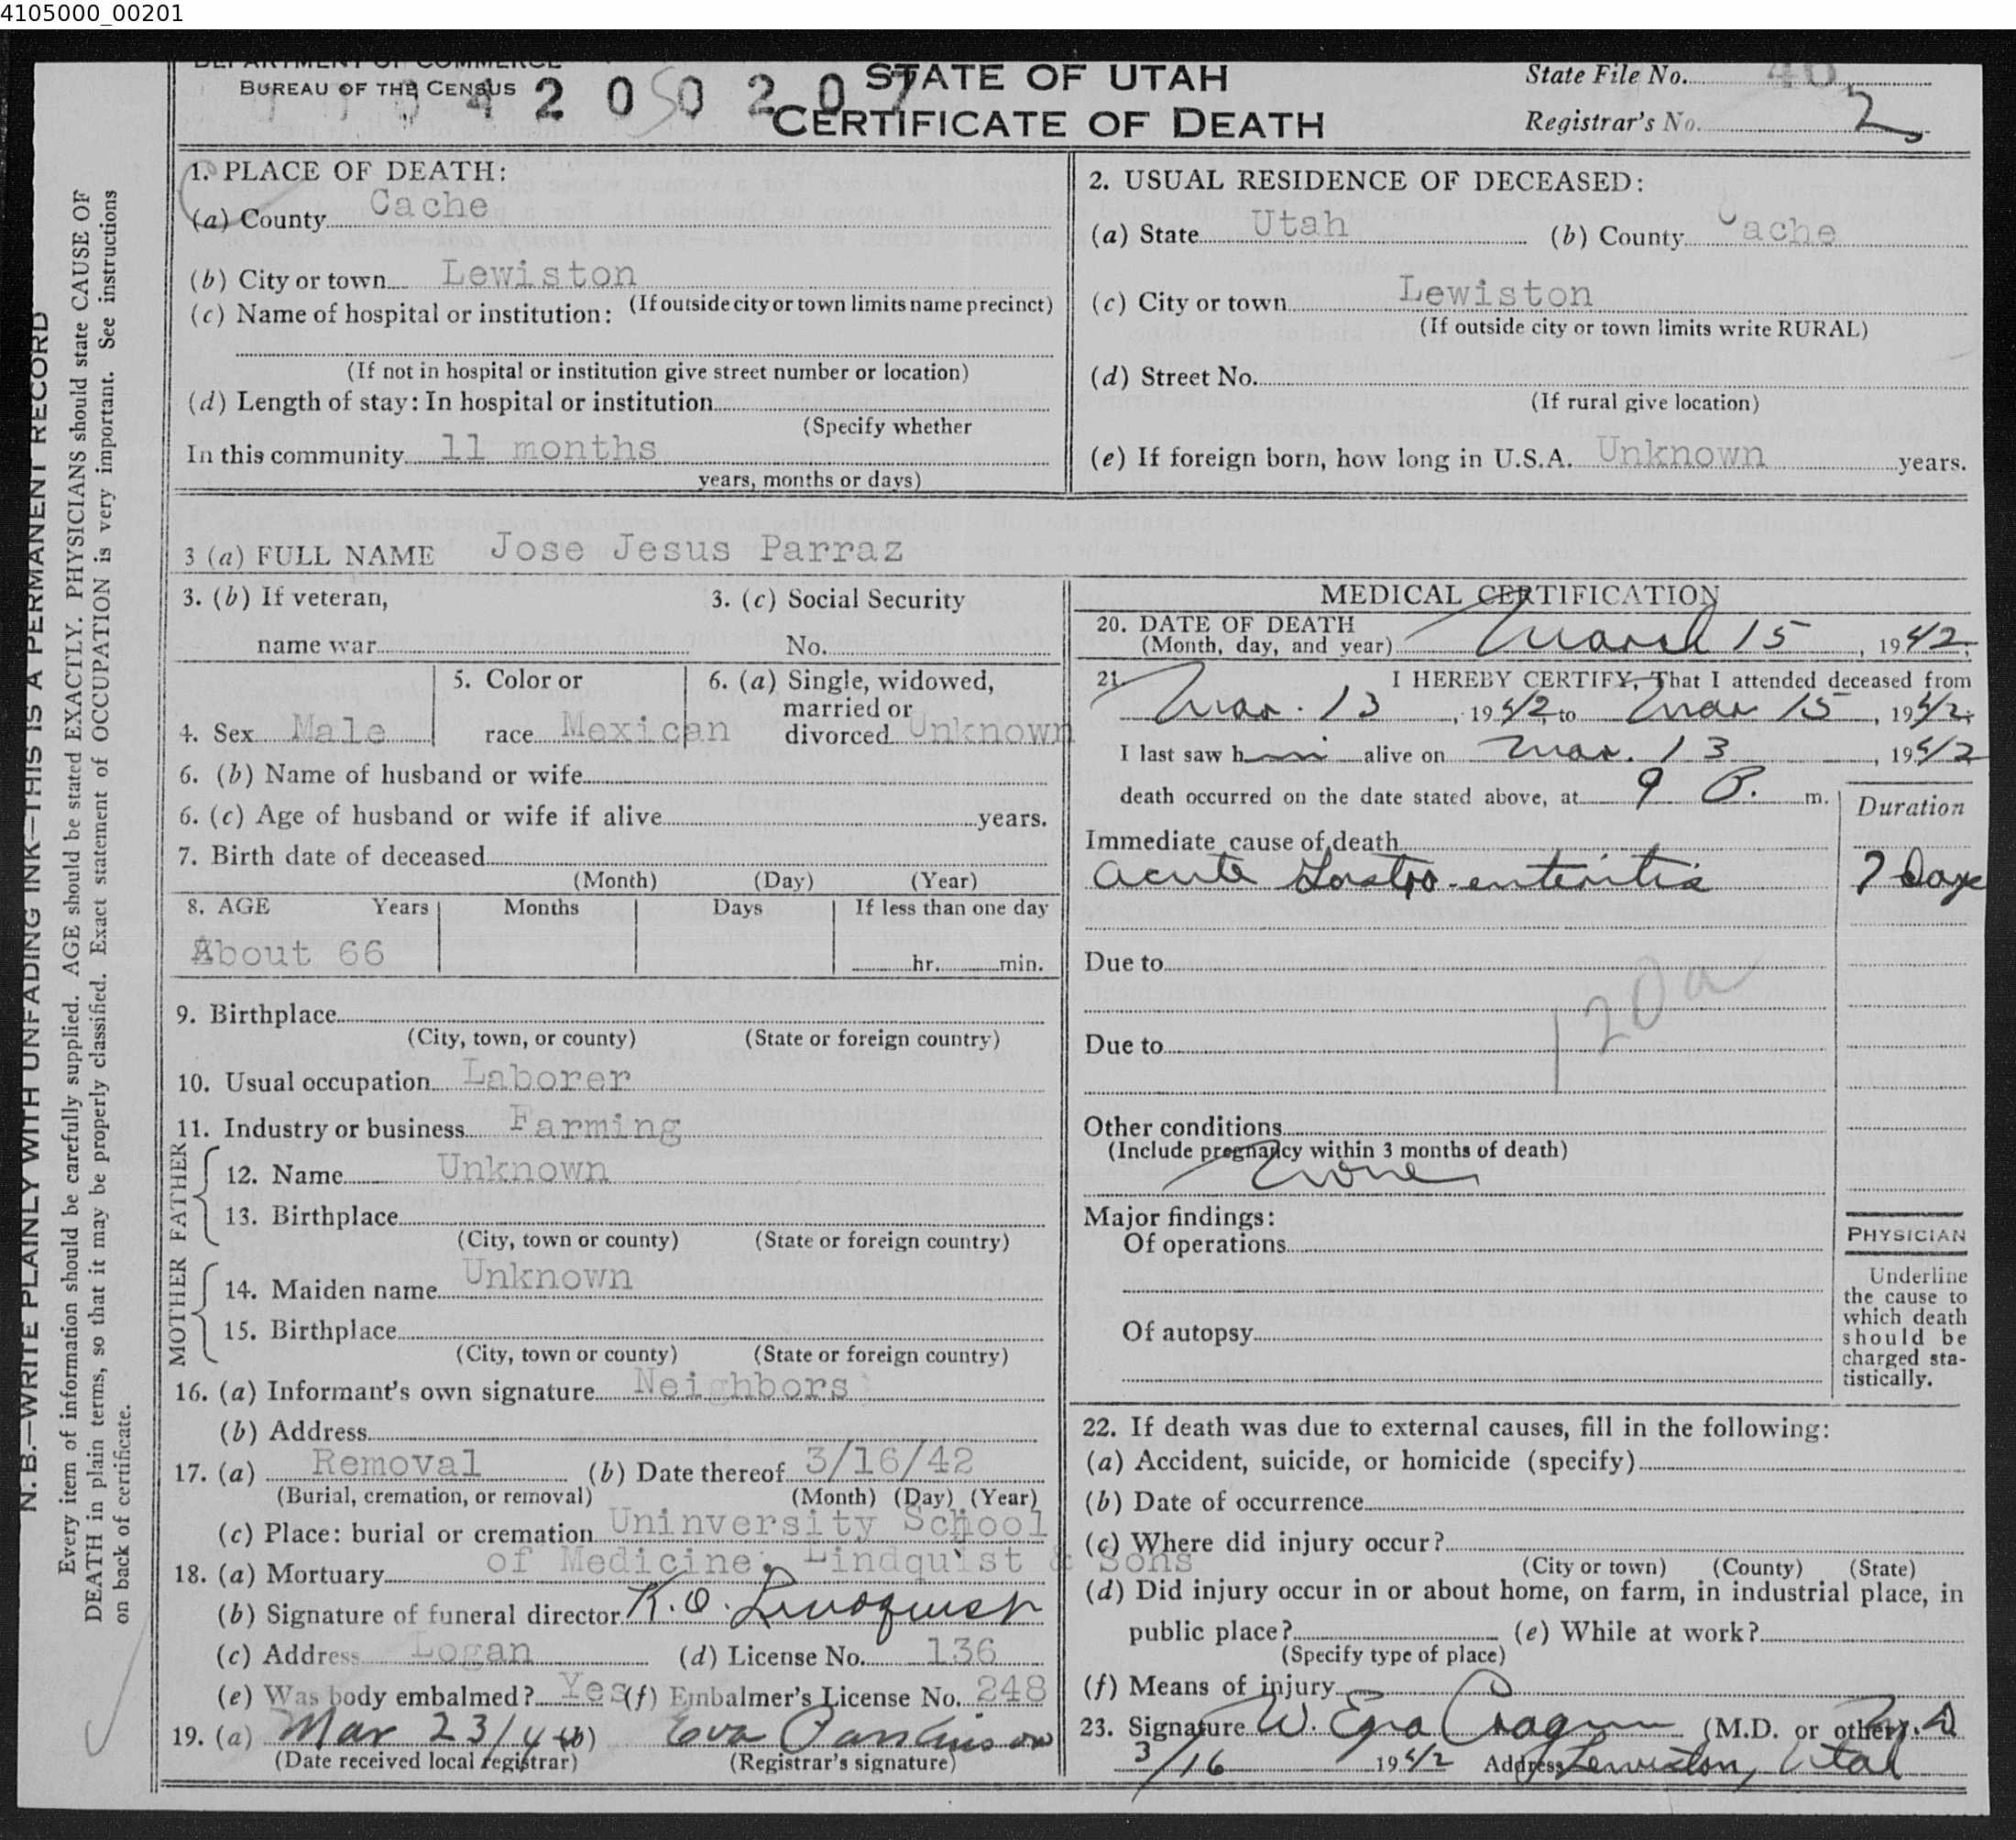 4105000_00201
BUREAU OF THE CENSUS
STATE OF UTAH
CERTIFICATE OF DEATH
State File No.
Registrar's No. 2
1. PLACE OF DEATH:
(a) County Cache
(b) City or town Lewiston
(If outside city or town limits name precinct)
(c) Name of hospital or institution:
(If not in hospital or institution give street number or location)
(d) Length of stay: In hospital or institution
(Specify whether
In this community 11 months
years, months or days)
2. USUAL RESIDENCE OF DECEASED:
(a) State Utah (b) County Cache
(c) City or town Lewiston
(If outside city or town limits write RURAL)
(d) Street No.
(If rural give location)
(e) If foreign born, how long in U.S.A. Unknown years.
3 (a) FULL NAME Jose Jesus Parraz
3. (b) If veteran,
name war
3. (c) Social Security
No.
4. Sex Male
5. Color or
race Mexican
6. (a) Single, widowed,
married or
divorced Unknown
6. (b) Name of husband or wife
6. (c) Age of husband or wife if alive years.
7. Birth date of deceased
(Month) (Day) (Year)
8. AGE Years Months Days If less than one day
About 66 hr. min.
9. Birthplace
(City, town, or county) (State or foreign country)
10. Usual occupation Laborer
11. Industry or business Farming
FATHER
12. Name Unknown
13. Birthplace
(City, town or county) (State or foreign country)
MOTHER
14. Maiden name Unknown
15. Birthplace
(City, town or county) (State or foreign country)
16. (a) Informant's own signature Neighbors
(b) Address
17. (a) Removal (b) Date thereof 3/16/42
(Burial, cremation, or removal) (Month) (Day) (Year)
(c) Place: burial or cremation Uninversity School
of Medicine; Lindquist & Sons
18. (a) Mortuary
(b) Signature of funeral director K. O. Lindquist
(c) Address Logan (d) License No. 136
(e) Was body embalmed? Yes (f) Embalmer's License No. 248
19. (a) Mar 23/4 (b) Eva Parkinson
(Date received local registrar) (Registrar's signature)
MEDICAL CERTIFICATION
20. DATE OF DEATH
(Month, day, and year) March 15, 1942
21. I HEREBY CERTIFY, That I attended deceased from
Mar. 13, 1942 to Mar 15, 1942
I last saw him alive on Mar. 13, 1942
death occurred on the date stated above, at 9 P. m.
Duration
Immediate cause of death
Acute Gastro-enteritis 7 Days
Due to
Due to
120a
Other conditions
(Include pregnancy within 3 months of death)
None
Major findings:
Of operations
Of autopsy
PHYSICIAN
Underline
the cause to
which death
should be
charged sta-
tistically.
22. If death was due to external causes, fill in the following:
(a) Accident, suicide, or homicide (specify)
(b) Date of occurrence
(c) Where did injury occur?
(City or town) (County) (State)
(d) Did injury occur in or about home, on farm, in industrial place, in
public place? (e) While at work?
(Specify type of place)
(f) Means of injury
23. Signature W. Ezra Cragun (M.D. or other) M.D.
3/16 1942 Address Lewiston, Utah
N. B.—WRITE PLAINLY WITH UNFADING INK—THIS IS A PERMANENT RECORD
Every item of information should be carefully supplied. AGE should be stated EXACTLY. PHYSICIANS should state CAUSE OF
DEATH in plain terms, so that it may be properly classified. Exact statement of OCCUPATION is very important. See instructions
on back of certificate.